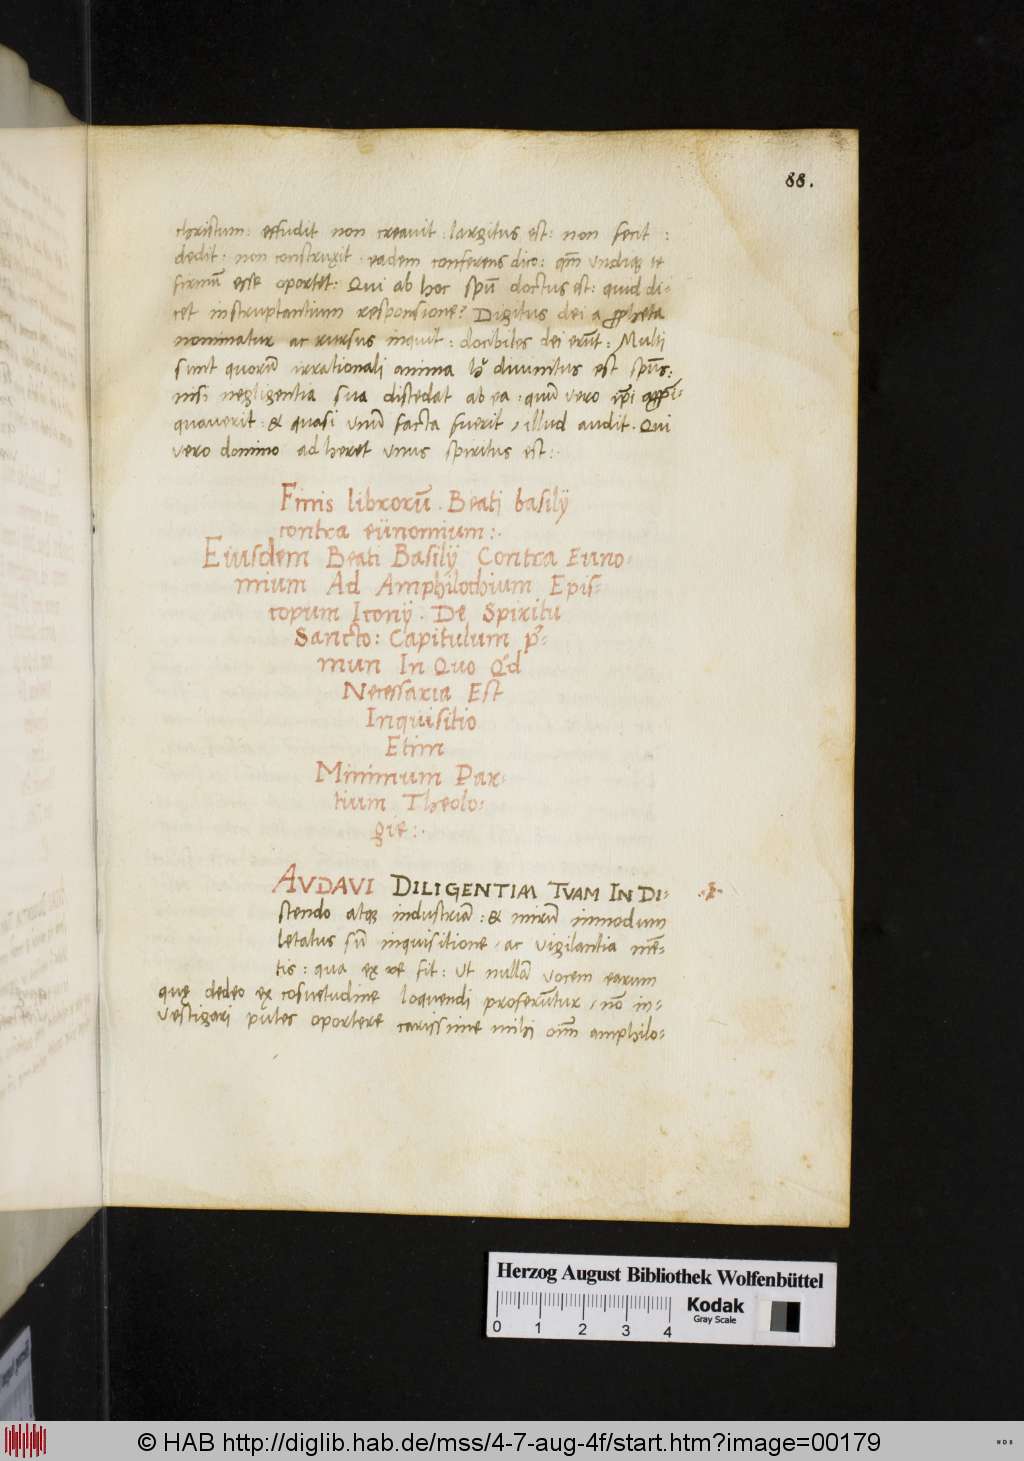 88.
christum: effudit non creauit: largitus est: non fecit:
dedit: non construxit. eadem conferens dico: qm̄ vndiq; te
firmū esse oportet: Qui ab hoc spū doctus est: quid di-
cet instruptantium responsione? Digitus dei a ꝓpheta
nominatur ac rursus inquit: docibiles dei erūt: Multi
sunt quorū irrationali anima diuinitus est spūs:
nisi negligentia sua distedat ab ea: quū vero
quauerit: & quasi vnū facta fuerit, illud audit. Qui
vero domino adheret vnus spiritus est:.
Finis librorū. Beati basilij
contra eünomium:.
Eiusdem Beati Basilij Contra Euno-
mium Ad Amphilothium Epis-
copum Iconij. De Spiritu
Sancto: Capitulum p̄-
mun In Quo Qd
Necessaria Est
Inquisitio
Etim
Minimum Par-
tium Theolo-
gie:.
AVDAVI DILIGENTIAM TVAM IN DI-
stendo atq; industriā: & mirū inmodum
letatus sū inquisitione, ac vigilantia mē-
tis: qua ex re fit: Vt nullā vocem earum
quę dedeo ex cosuetudine loquendi proferūtur, nō in-
vestigari putes oportere carissime mihi om̄ amphilo-
Herzog August Bibliothek Wolfenbüttel
0 1 2 3 4
Kodak
Gray Scale
© HAB http://diglib.hab.de/mss/4-7-aug-4f/start.htm?image=00179